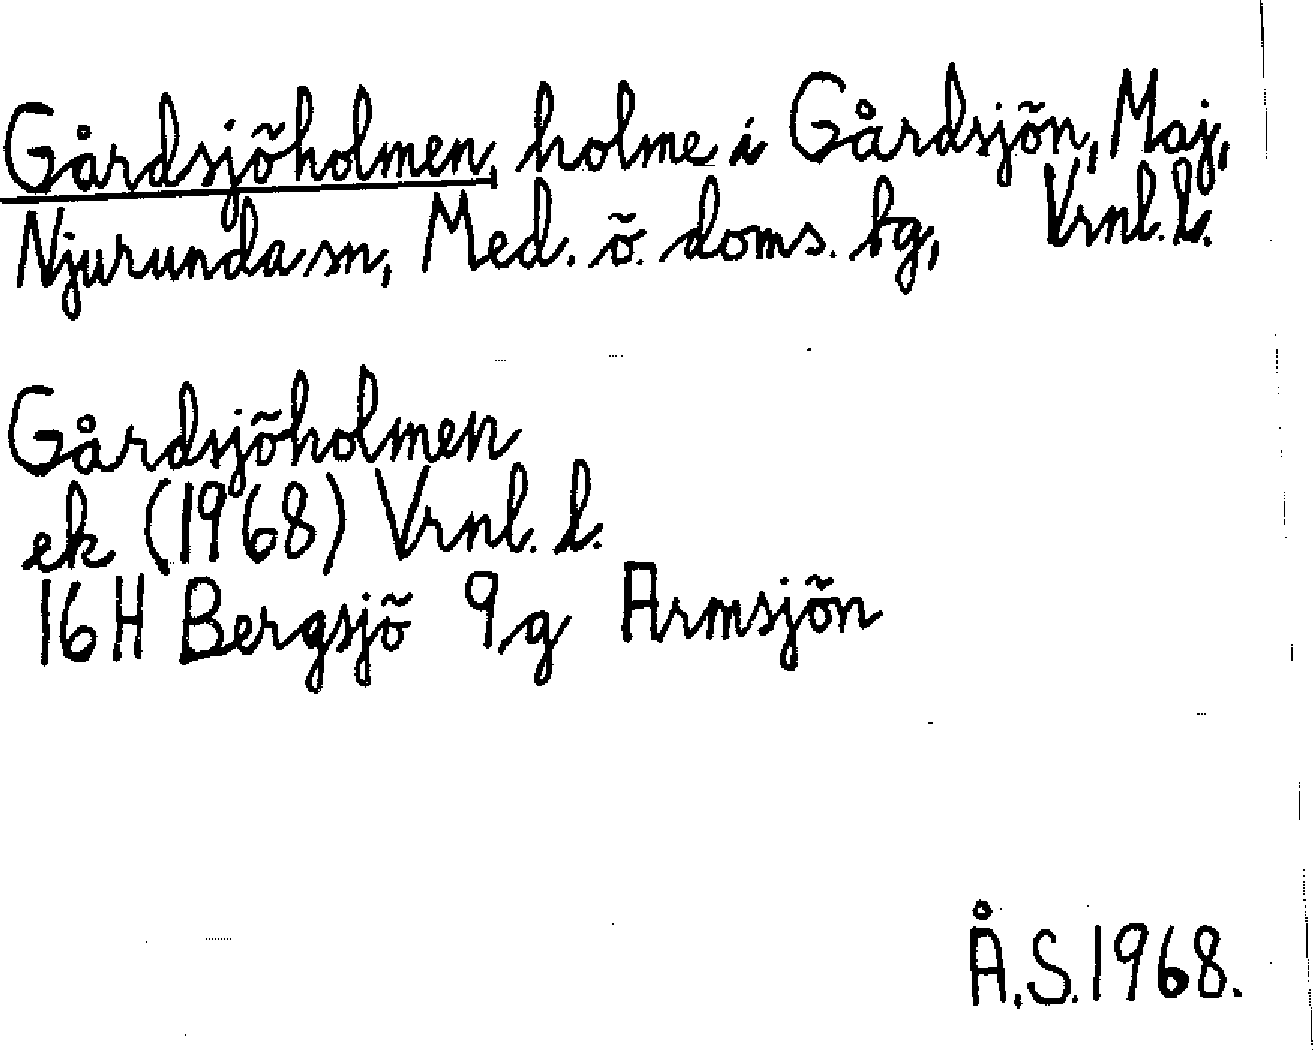 Gårdsjöholmen, holme i Gårdsjön, Maj,
Njurunda sn, Med. ö. doms. hg, Vrnl. l.
Gårdsjöholmen
ek (1968) Vrnl. l.
16H Bergsjö 9g Armsjön
Å.S. 1968.